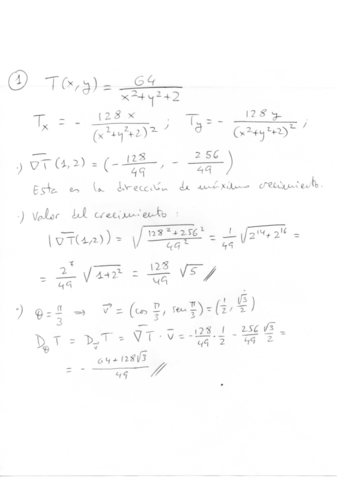 ① T(x,y) = 64 / (x²+y²+2)
Tx = - 128x / (x²+y²+2)² ; Ty = - 128y / (x²+y²+2)² ;
·) ∇T(1,2) = (-128/49, -256/49)
Esta es la dirección de máximo crecimiento.
·) Valor del crecimiento :
|∇T(1,2)| = √((128²+256²)/49²) = 1/49 √(2¹⁴+2¹⁶) =
= 2⁷/49 √(1+2²) = 128/49 √5 //
·) θ = π/3 ⇒ v = (cos π/3, sen π/3) = (1/2, √3/2)
D_θ T = D_v T = ∇T · v = -128/49 · 1/2 - 256/49 √3/2 =
= - (64+128√3)/49 //